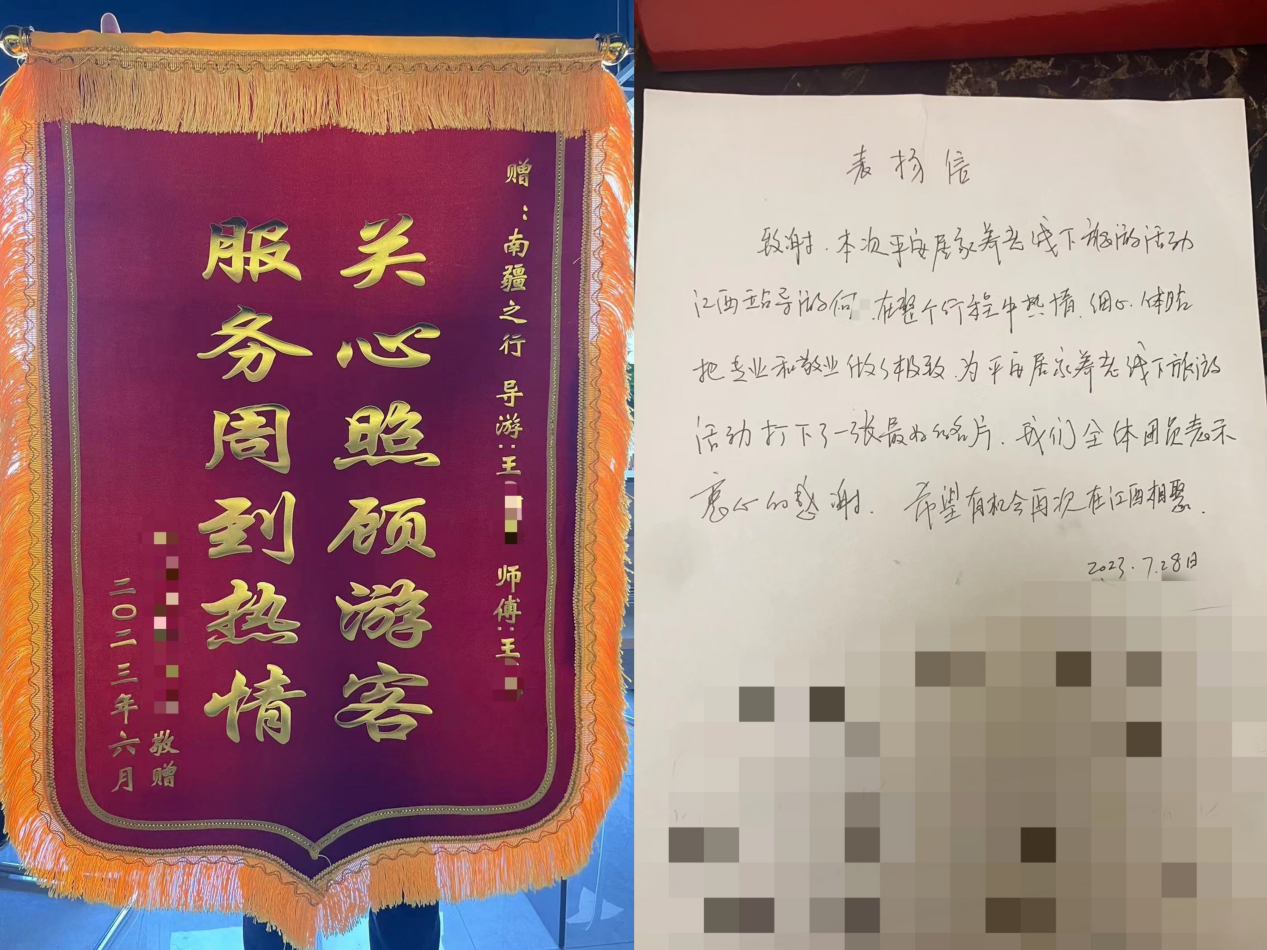 赠：南疆之行 导游：王 师傅：王
关心照顾游客
服务周到热情
敬赠
二〇二三年六月
表扬信
致谢．本次平安居家养老线下旅游活动
江西站导游何 ，在整个行程中热情．细心．体贴
把专业和敬业做了极致．为平安居家养老线下旅游
活动打下了一张最好的名片．我们全体团员表示
衷心的感谢．希望有机会再次在江西相聚．
2023．7.28日